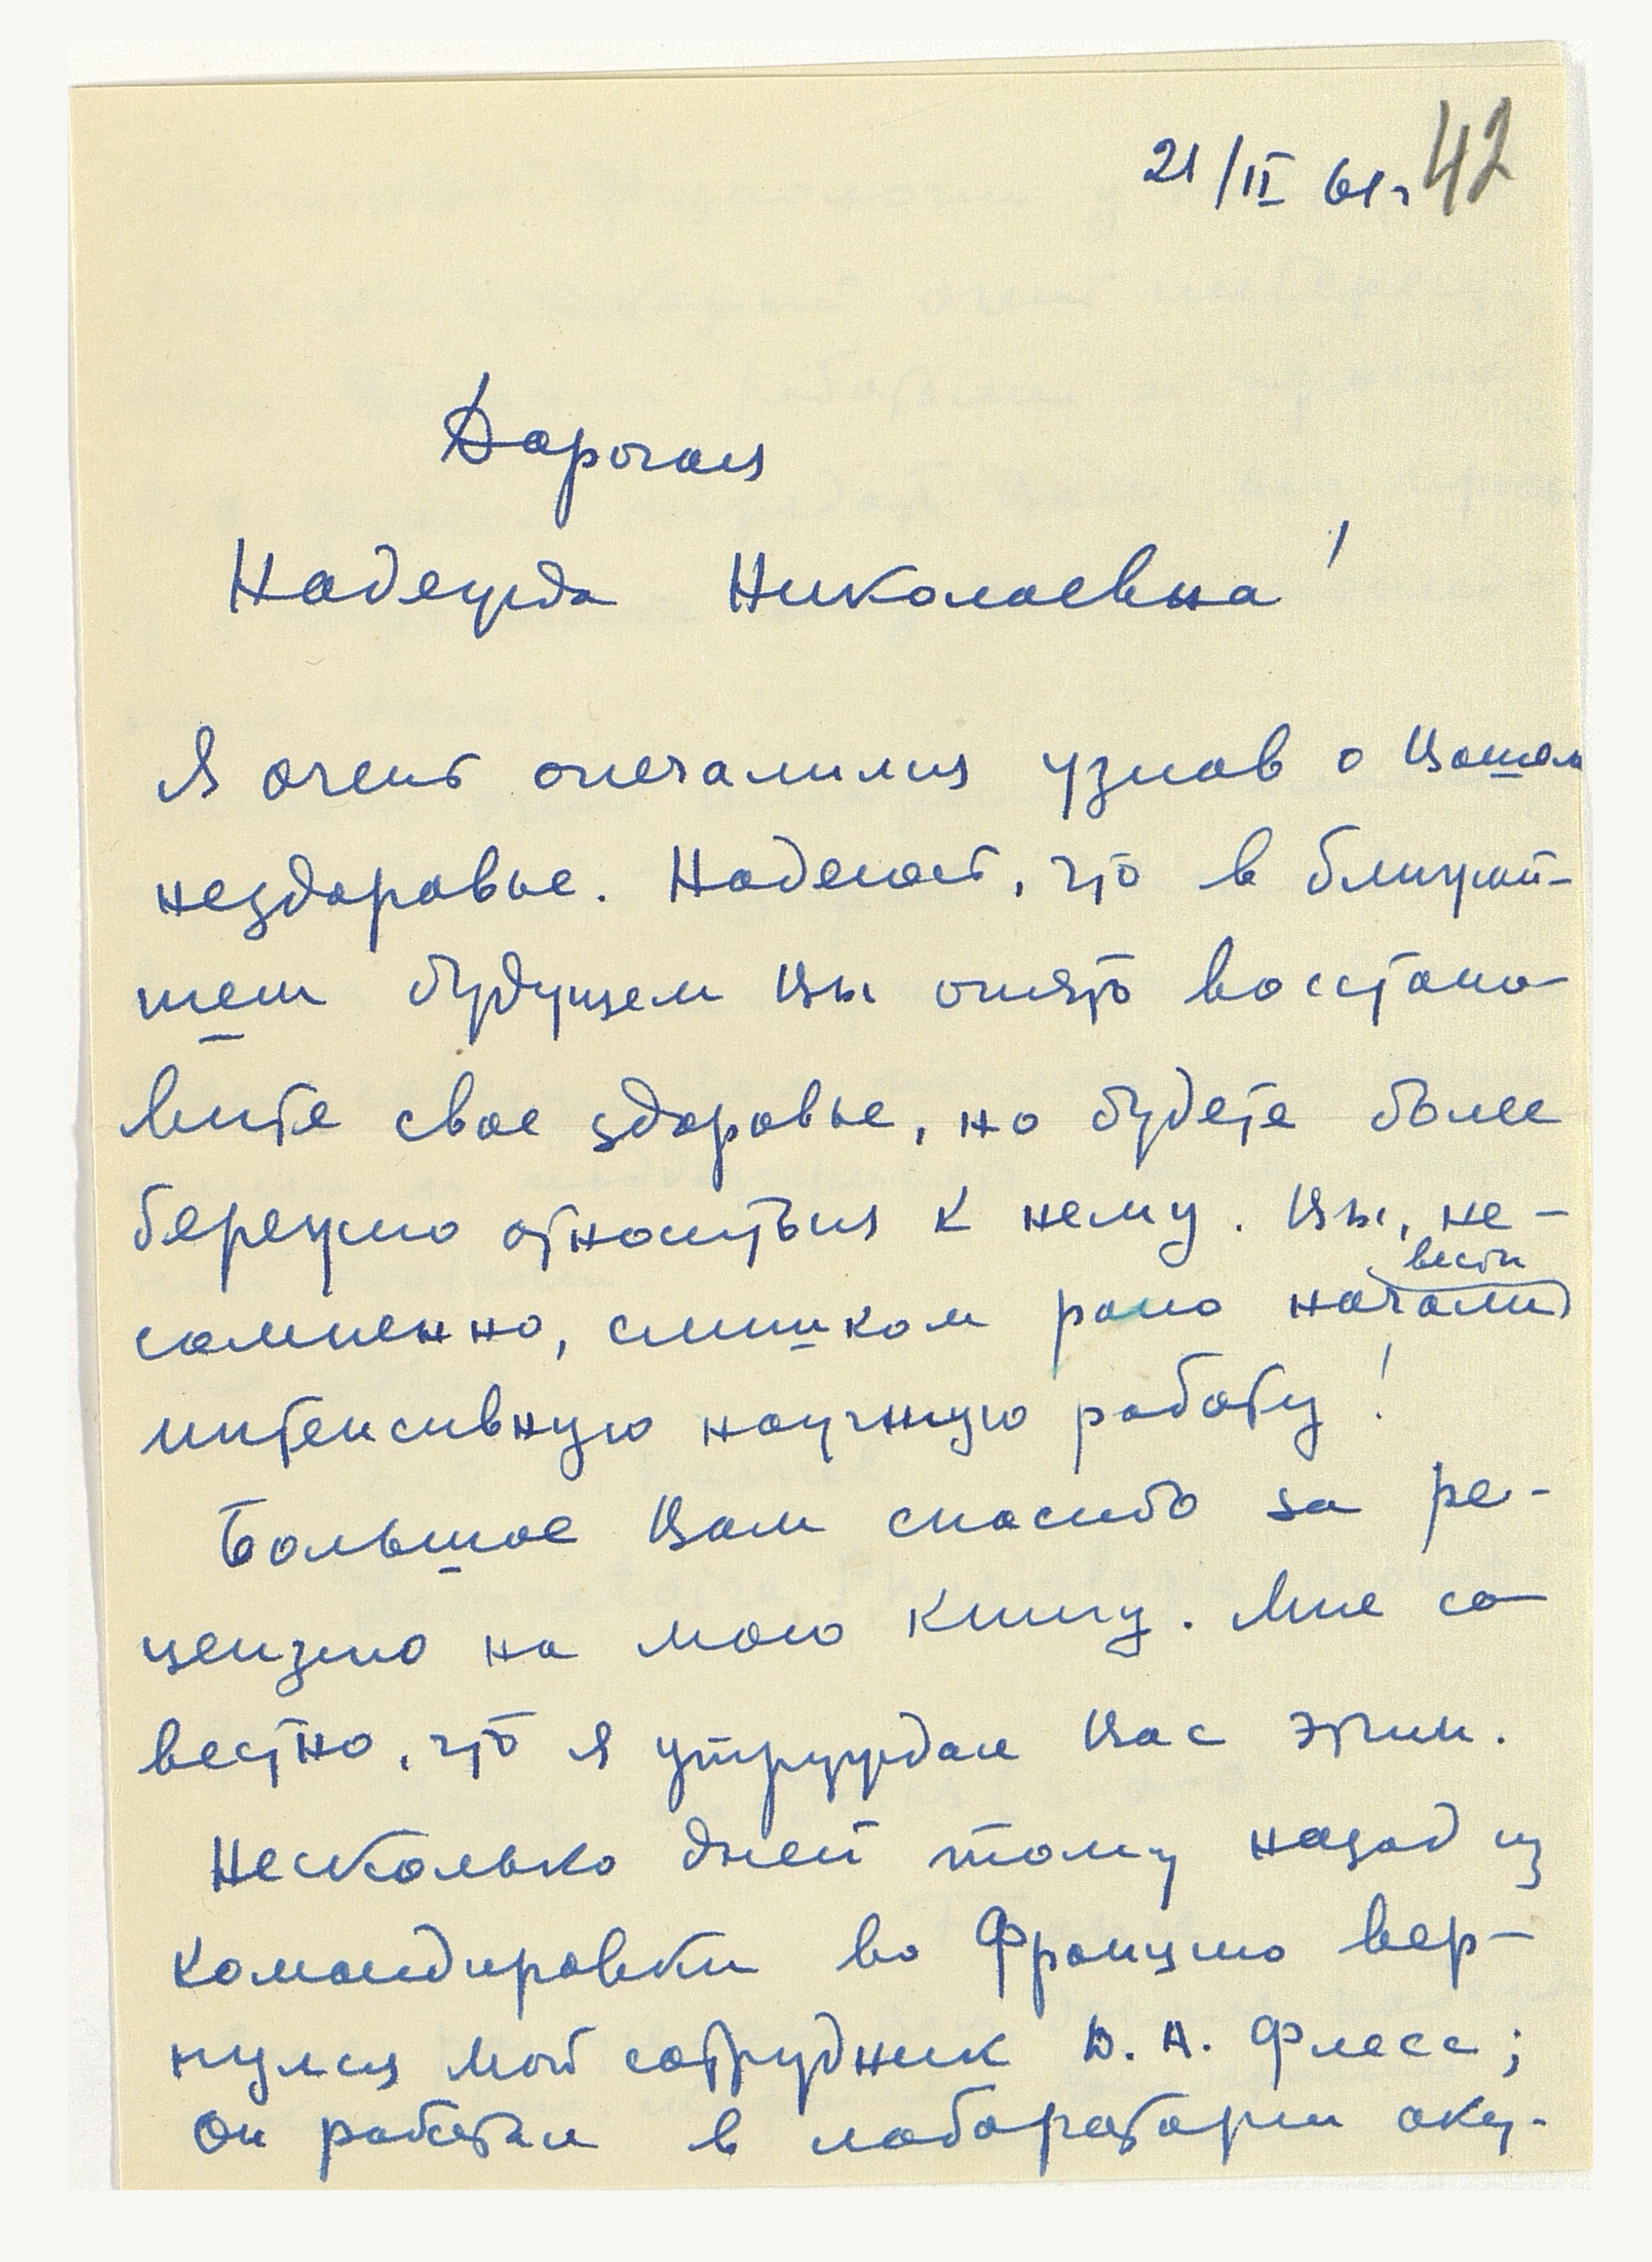 21/II 61г 42
Дорогая
Надежда Николаевна!
Я очень опечалился узнав о Вашем
нездоровье. Надеюсь, что в ближай-
шем будущем Вы опять восстано-
вите свое здоровье, но будете более
бережно относиться к нему. Вы, не-
вести
сомненно, слишком рано начали
интенсивную научную работу!
Большое Вам спасибо за ре-
цензию на мою книгу. Мне со-
вестно, что я утруждал Вас этим.
Несколько дней тому назад из
командировки во Францию вер-
нулся мой сотрудник Д. А. Флесс;
Он работал в лаборатории аку-